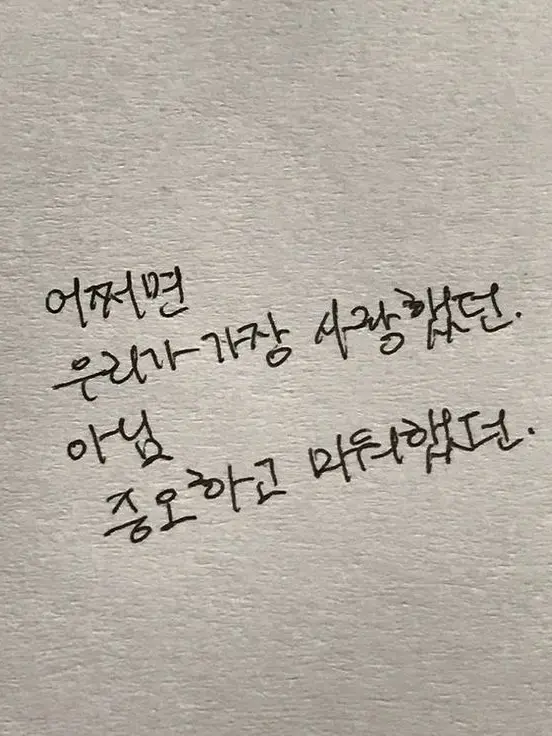 어쩌면
우리가 가장 사랑했던.
아님
증오하고 미워했던.